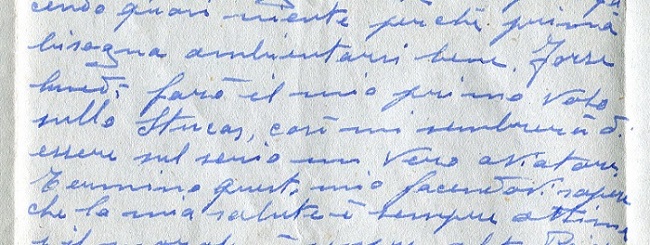 cendo quasi niente perchè prima
bisogna ambientarsi bene. Forse
lunedì farò il mio primo volo
sullo Stucas, così mi sembrerà d'
essere sul serio un vero aviatore.
Termino questa mio facendovi sapere
che la mia salute è sempre ottima
è sempre alto